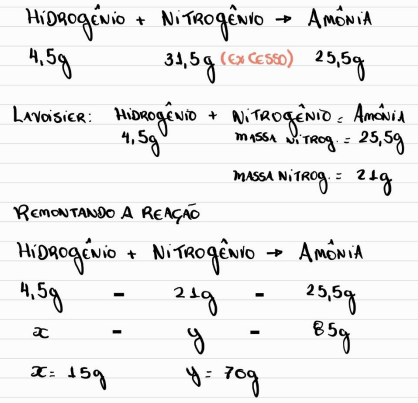 HIDROGÊNIO + NITROGÊNIO → AMÔNIA
4,5g 31,5g (EXCESSO) 25,5g
LAVOISIER: HIDROGÊNIO + NITROGÊNIO = AMÔNIA
4,5g MASSA NITROG. = 25,5g
MASSA NITROG. = 21g
REMONTANDO A REAÇÃO
HIDROGÊNIO + NITROGÊNIO → AMÔNIA
4,5g - 21g - 25,5g
x - y - 85g
x = 15g y = 70g